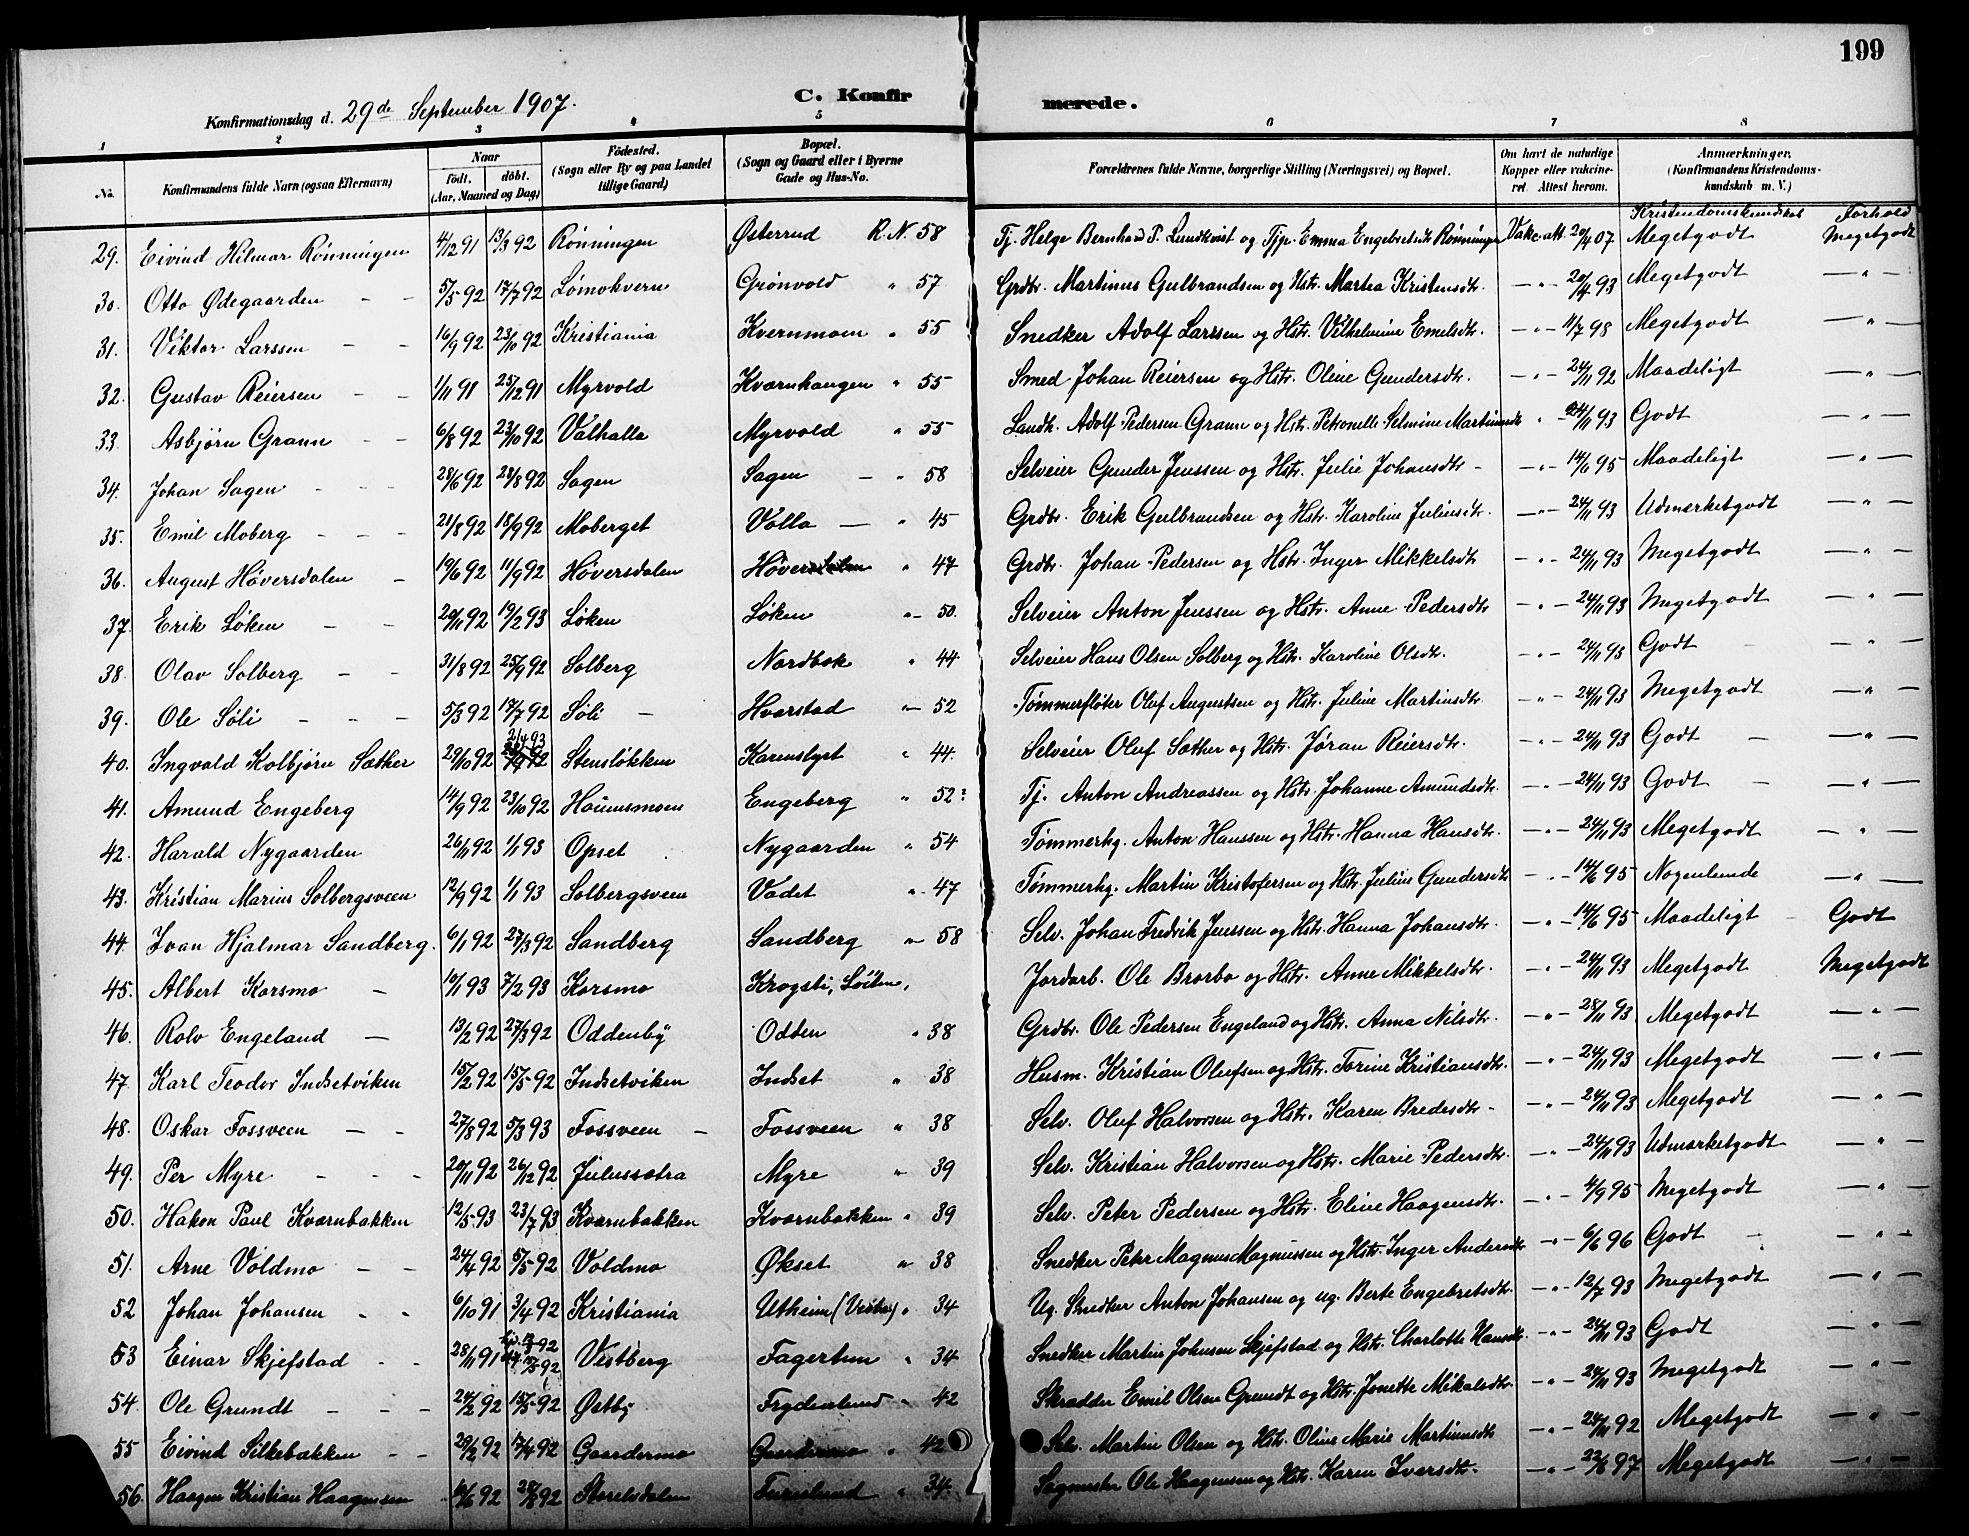 199
C. Konfirmerede.
Konfirmationsdag d. 29de September 1907.
1 2 3 4 5 6 7 8
No. Konfirmandens fulde Navn (ogsaa Efternavn) Naar födt. döbt. (Aar, Maaned og Dag) Födested. (Sogn eller By og paa Landet tillige Gaard) Bopæl. (Sogn og Gaard eller i Byerne Gade og Hus-No. Forældrenes fulde Navne, borgerlige Stilling (Næringsvei) og Bopæl. Om havt de naturlige Kopper eller vakcineret. Attest herom. Anmærkninger. (Konfirmandens Kristendomskundskab m. V.)
Kristendomskundskab Forhold
29. Eivind Hilmar Rønningen 4/12 91 13/3 92 Rønningen Østerrud R.N. 58 Tj. Helge Bernhard P. Lundkvist og Tjp. Emma Engebretsdt Rønningen Vakc. att. 20/4 07 Megetgodt Megetgodt
30. Otto Ødegaarden - - 5/5 92 17/7 92 Lømokvern Grönvold " 57 Grdbr. Martinus Gulbrandsen og Hstr. Martea Kristensdtr. - " - 20/4 93 Megetgodt - " -
31. Viktor Larssen - - 16/9 92 23/10 92 Kristiania Kvernmoen " 55 Snedker Adolf Larssen og Hstr. Vilhelmine Emelsdtr. - " - 11/7 98 Megetgodt - " -
32. Gustav Reiersen - - 1/11 91 25/12 91 Myrvold Kværnhaugen " 55 Smed Johan Reiersen og Hstr. Oline Gundersdtr. - " - 24/11 92 Maadeligt - " -
33. Asbjørn Grann - - 6/8 92 23/10 92 Valhalla Myrvold " 55 Landh. Adolf Pedersen Grann og Hstr. Petronelle Selmine Martinusdt " - 24/11 93 Godt - " -
34. Johan Sagen - - - 28/6 92 28/8 92 Sagen Sagen - " 58 Selveier Gunder Jenssen og Hstr. Julie Johansdtr - - " - 14/6 95 Maadeligt - " -
35. Emil Moberg - - - 21/8 92 18/9 92 Moberget Volla - " 45 Grdbr. Erik Gulbrandsen og Hstr. Karoline Juliusdtr - " - 24/11 93 Udmerketgodt - " -
36. August Höversdalen - 19/6 92 11/9 92 Höversdalen Höversdalen " 47 Grdbr. Johan Pedersen og Hstr. Inger Mikkelsdtr - " - 24/11 93 Megetgodt - " -
37. Erik Løken - - 20/11 92 19/2 93 Løken Løken " 50. Selveier Anton Jenssen og Hstr. Anne Pedersdtr - " - 24/11 93 Megetgodt - " -
38. Olav Solberg - - 31/8 92 25/9 92 Solberg Nordbæk " 44 Selveier Hans Olsen Solberg og Hstr. Karoline Olsdtr. - " - 24/11 93 Godt - " -
39. Ole Søli - - - 5/3 92 17/7 92 Søli - Hvarstad " 52 Tømmerfløter Oluf Augustsen og Hstr. Juline Martinsdtr. - " - 24/11 93 Megetgodt - " -
40. Ingvald Kolbjørn Sæther 29/10 92 2/4 93 Stensløkken Karenslyst " 44. Selveier Oluf Sæther og Hstr. Jøran Reiersdtr. - " - 24/11 93 Godt - - " -
41. Amund Engeberg 14/9 92 23/10 92 Houmsmoen Engeberg " 52? Tj. Anton Andreassen og Hstr. Johanne Amundsdtr. - " - 24/11 93 Godt - - " -
42. Harald Nygaarden 26/11 92 1/1 93 Opset Nygaarden " 54 Tømmerhg. Anton Hanssen og Hstr. Hanna Hansdtr. - " - 24/11 93 Megetgodt - " -
43. Kristian Marius Solbergsveen 12/9 92 1/1 93 Solbergsveen Vadet " 47 Tømmerhg. Martin Kristofersen og Hstr. Juline Gundersdtr - " - 14/6 95 Nogenlunde - " -
44. Ivan Hjalmar Sandberg. 6/1 92 27/3 92 Sandberg Sandberg " 58 Selv. Johan Fredrik Jenssen og Hstr. Hanna Johansdtr. - " - 14/6 95 Maadeligt - Godt
45. Albert Korsmo - 10/1 93 7/2 93 Korsmo Krogsti, Löiten, Jordarb. Ole Brorbo og Hstr. Anne Mikkelsdtr. - " - 24/11 93 Megetgodt Megetgodt
46. Rolv Engeland - 13/2 92 27/3 92 Oddenby Odden " 38 Grdbr. Ole Pedersen Engeland og Hstr. Anna Nilsdtr. - " - 28/11 93 Megetgodt - " -
47. Karl Teodor Indsetviken 15/2 92 15/5 92 Indsetviken Indset " 38 Husm. Kristian Olufsen og Hstr. Torine Kristiansdtr. - " - 24/11 93 Megetgodt - " -
48. Oskar Fossveen - - 27/8 92 5/3 93 Fossveen - Fossveen " 38 Selv. Oluf Halvorsen og Hstr. Karen Bredesdtr - - " - 24/11 93 Megetgodt - " -
49. Per Myre - - - 20/11 92 26/12 92 Julussætra Myre " 39 Selv. Kristian Halvorsen og Hstr. Marie Pedersdtr. - " - 24/11 93 Udmærketgodt - " -
50. Hakon Paul Kværnbakken 12/5 93 23/7 93 Kværnbakken Kværnbakken " 39 Selv. Peter Pedersen og Hstr. Eline Haagensdtr. - " - 4/9 95 Megetgodt - " -
51. Arne Voldmo - - 24/4 92 5/5 92 Voldmo Økset " 38 Snedker Petr Magnus Magnussen og Hstr. Inger Andersdtr - " - 6/6 96 Godt - - " -
52 Johan Johansen - - 6/10 91 3/4 92 Kristiania Utheim (Vestby) " 34 Ug. Snedker Anton Johansen og ug. Berte Engebretsdtr. - " - 12/7 93 Megetgodt - " -
53 Einar Skjefstad - - 28/11 91 Vestberg Fagertun " 34 Snedker Martin Johnsen Skjefstad og Hstr. Charlotte Hansdtr. - " - 24/11 93 Godt - " -
54. Ole Grundt - - - 24/2 92 15/5 92 Østby Frydenlund " 42 Skrædder Emil Olsen Grundt og Hstr. Jonette Mikalsdtr. - " - 24/11 93 Megetgodt - " -
55 Eivind Silkebakken - - 29/2 92 17/4 92 Gaardermo Gaardermo " 42 Selv. Martin Olsen og Hstr. Oline Marie Martinusdtr - " - 24/11 92 Megetgodt - " -
56. Haagen Kristian Haagensen 92 92 Storelvdalen Furulund " 34. Sagmester Ole Haagensen og Hstr. Karen Iversdtr. - " - 22/6 97 Megetgodt - " -